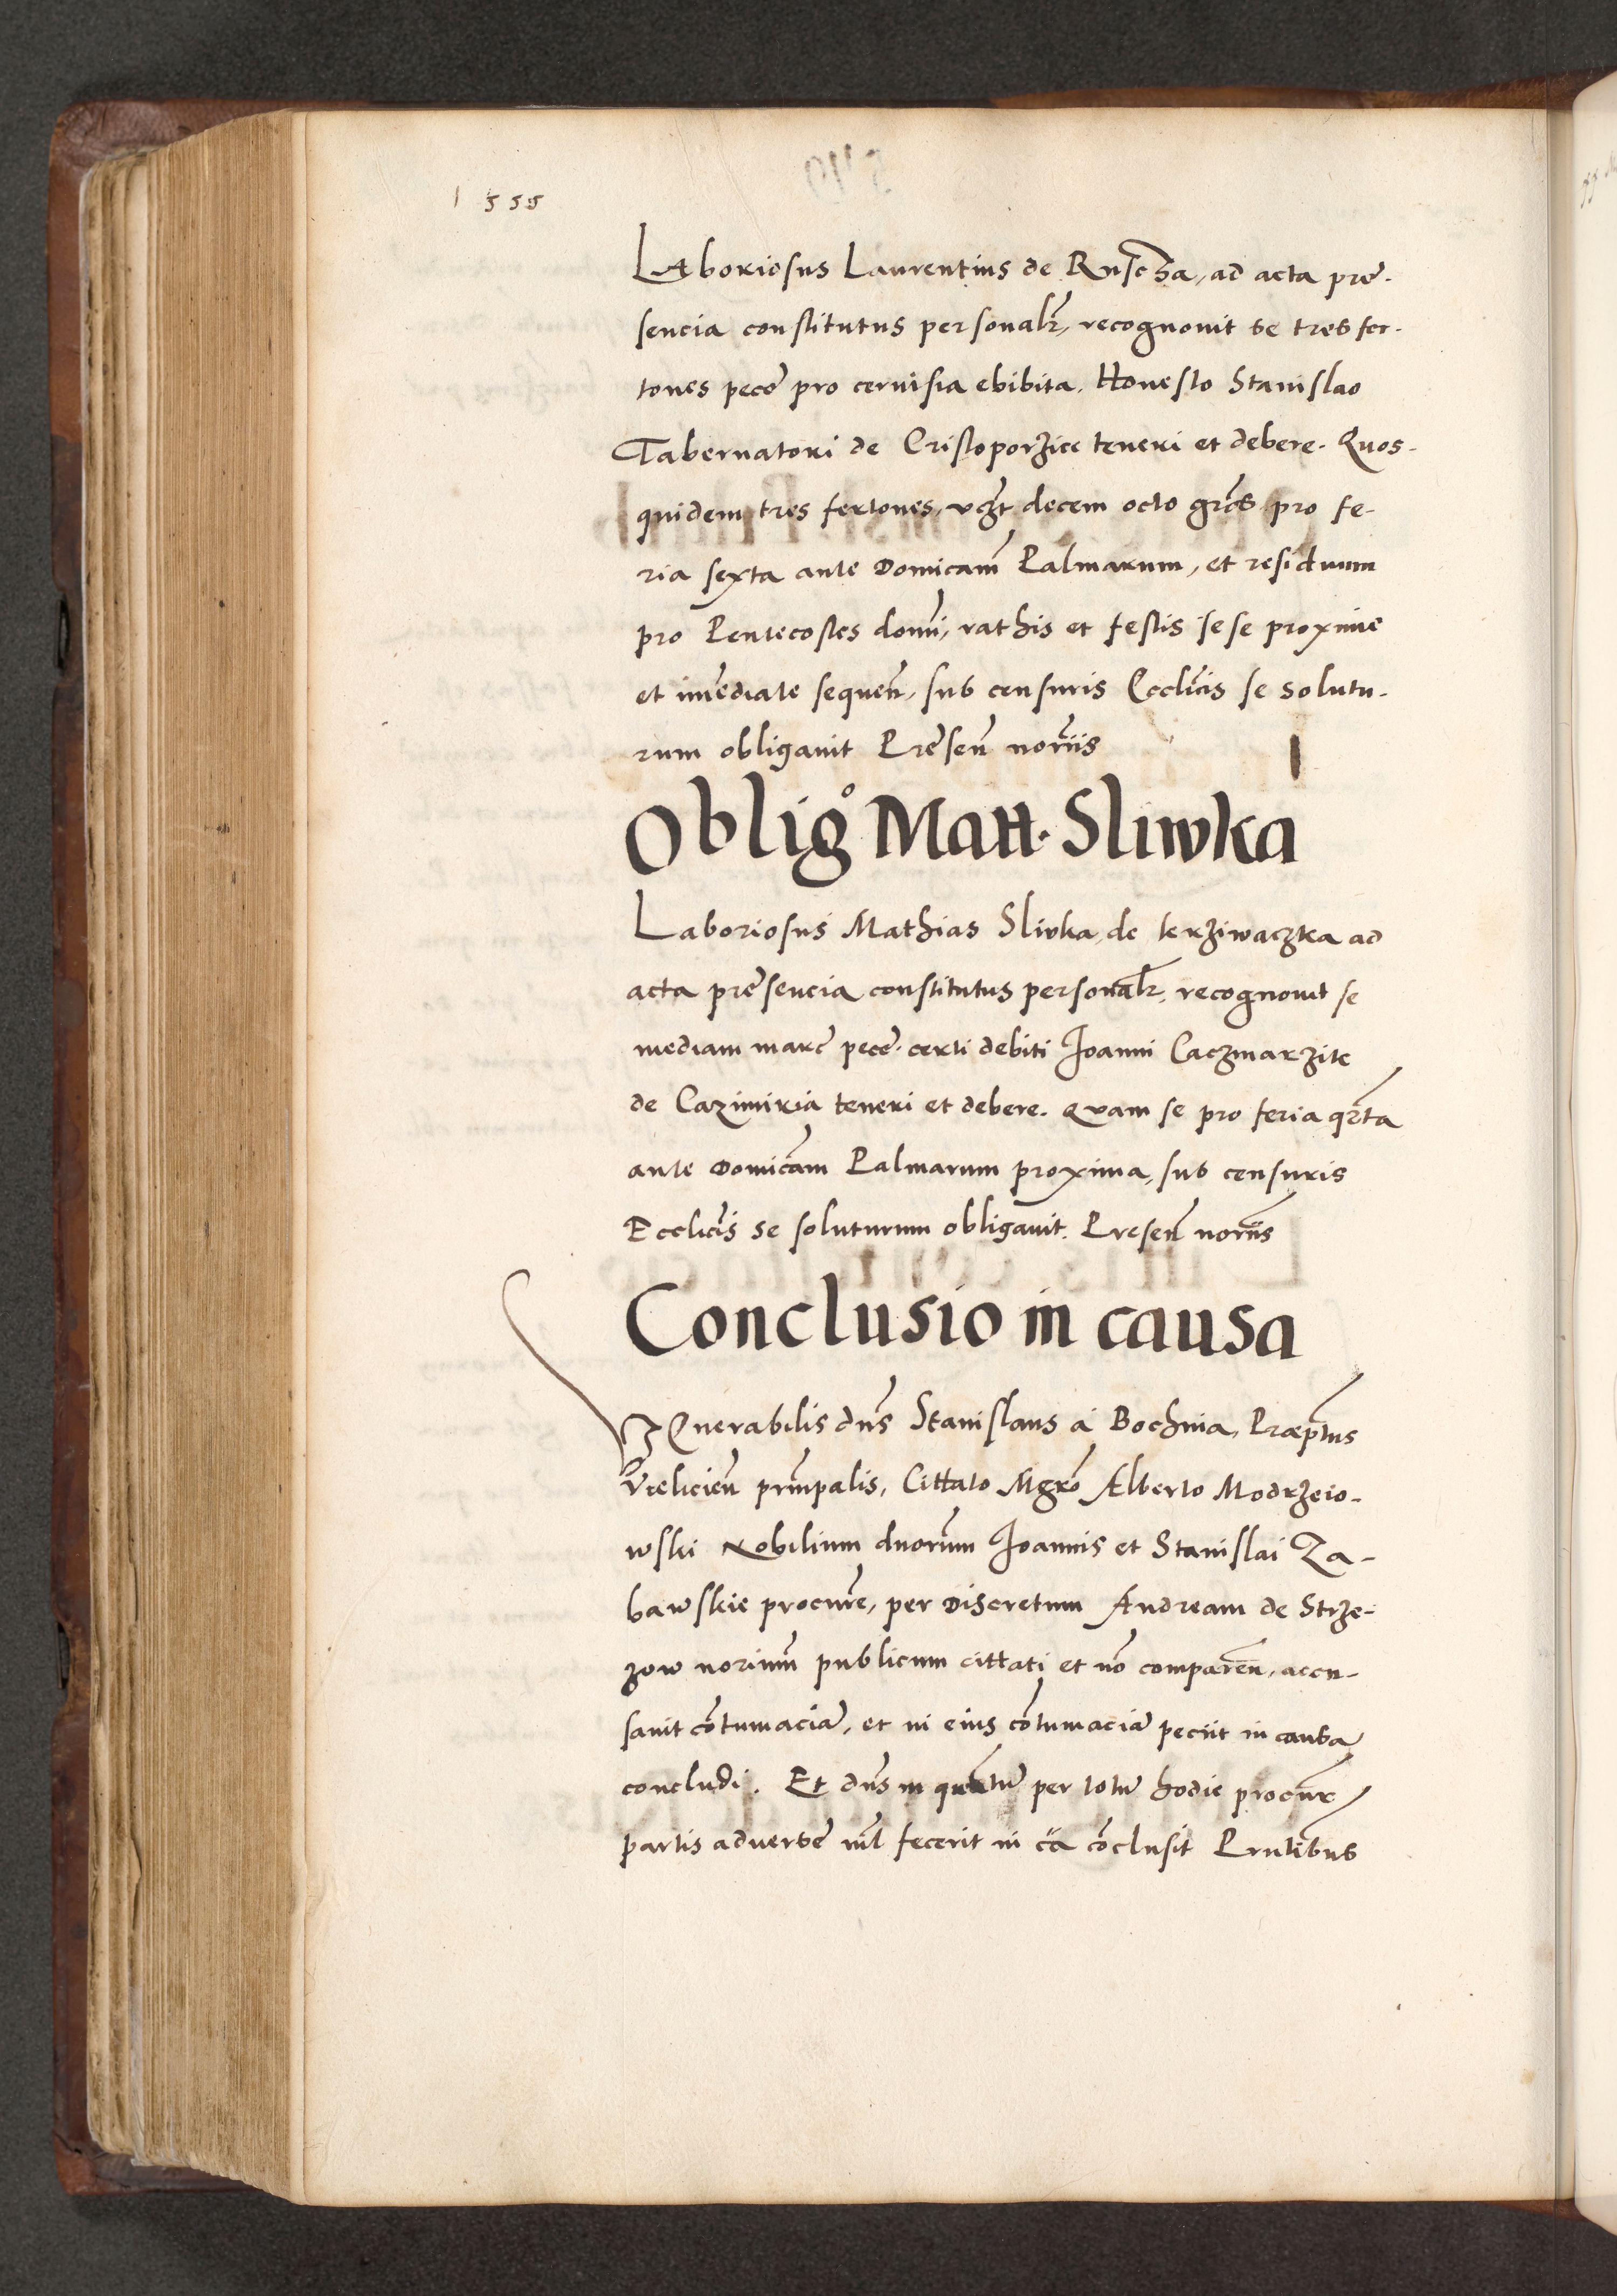 1555
Laboriosus Laurentius de Ruscza, ad acta pre-
sencia constitutus personalr̃, recognouit se tres fer-
tones pecẽ pro ceruisia ebibita, Honesto Stanislao
Tabernatori de Cristoporzice teneri et debere. Quos-
quidem tres fertones, vczt decem octo grõs pro fe-
ria sexta ante Domicam̃ Palmarum, et residuum
pro Pentecostes domi, rathis et festis sese proxime
et im̃ediate sequeñ, sub censuris Eccl̃icis se solutu-
rum obligauit Preseñ nor̃iis
Oblig° Matt. Sliwka
Laboriosus Mathias Slivka de krziwaczka ad
acta presencia constitutus personalr̃, recognouit se
mediam marc̃ pecẽ. certi debiti Joanni Caczmarzik
de Cazimiria teneri et debere. Quam se pro feria qrta
ante Domic̃am Palmarum proxima, sub censuris
Eccl̃icis se soluturum obligauit. Preseñ noriis
Conclusio in causa
VEnerabilis dns̃ Stanislaus a Bochnia, Praeptus
Vielicieñ prin̄palis, Cittato Mgrõ Alberto Modrzeio-
wski Nobilium dnorum̃ Joannis et Stanislai Za-
bawskie procurẽ, per Discretum Andream de Strze-
zow norium̃ publicum cittati et nõ compareñ, accu-
sauit cõtumaciã, et in eius cõtumaciã peciit in causa
concludi. Et dñs in quãtũ per totũ hodie procur̃
partis aduersẽ nil̃ fecerit in cã cõclusit Prñtibus